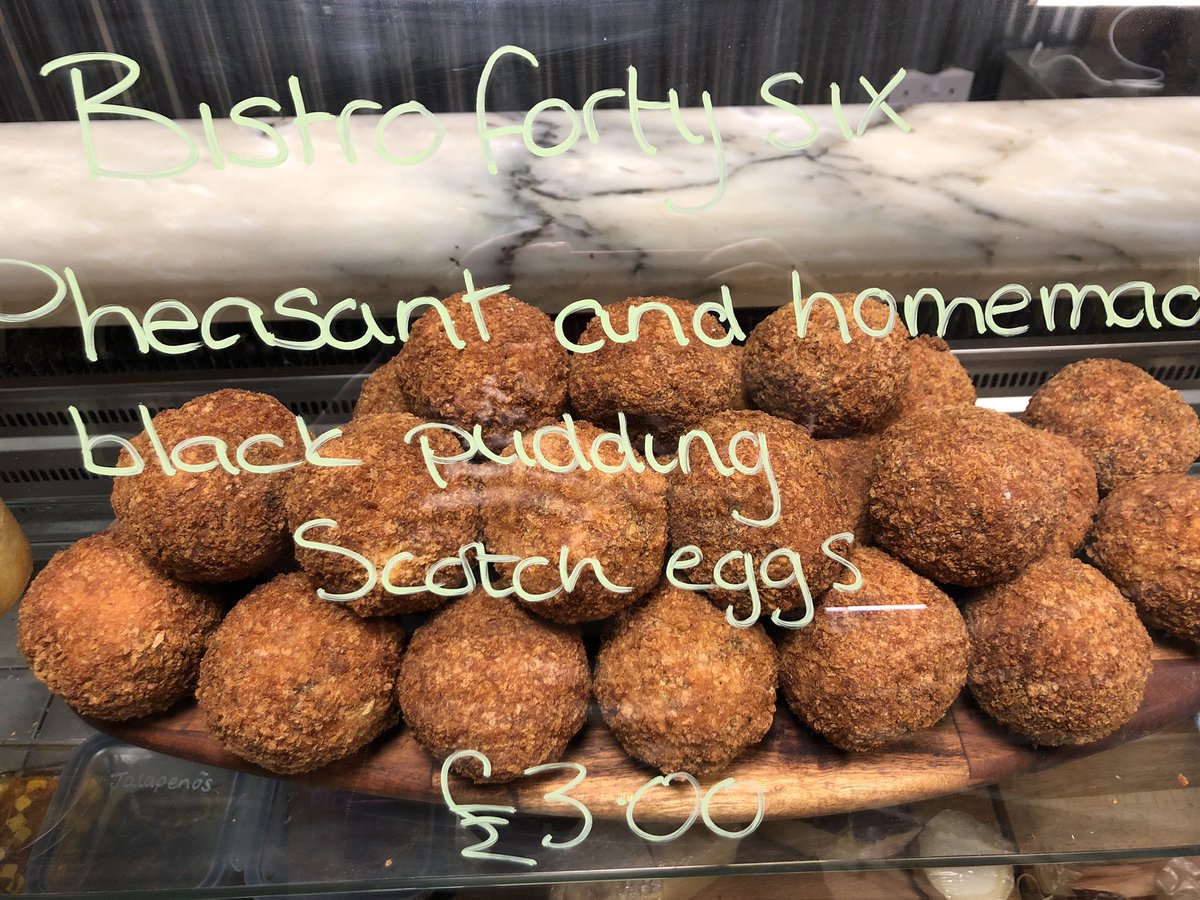 Bistro forty six
Pheasant and homemad
black pudding
Scotch eggs
£3.00
Jalapeno's